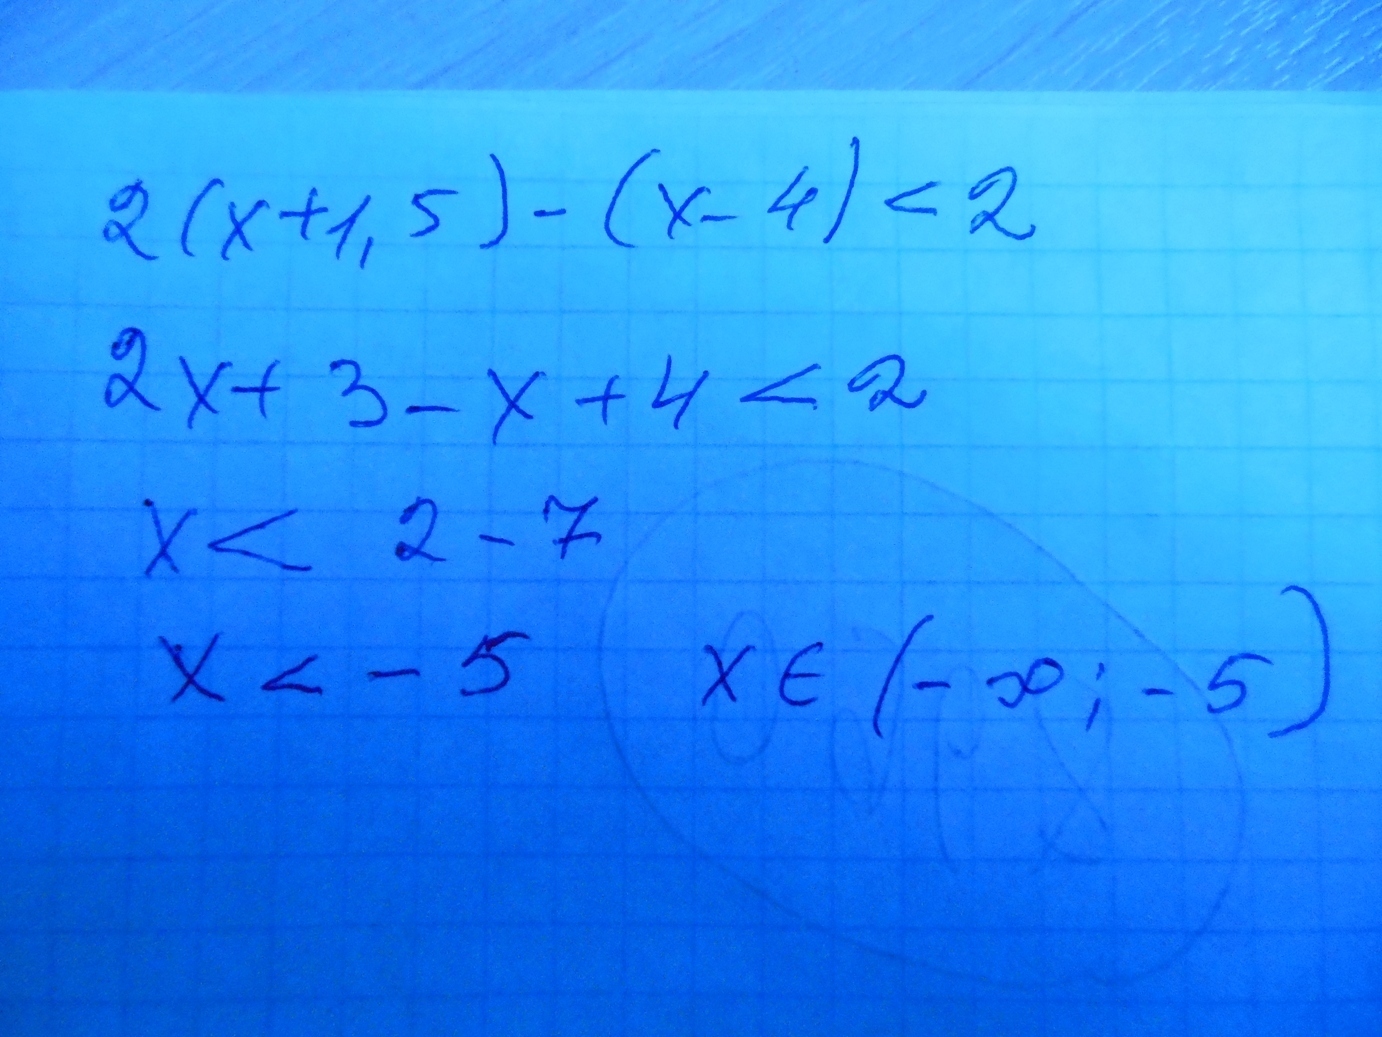 2(x+1,5)-(x-4)<2
2x+3-x+4<2
x< 2-7
x<-5 x∈(-∞;-5)